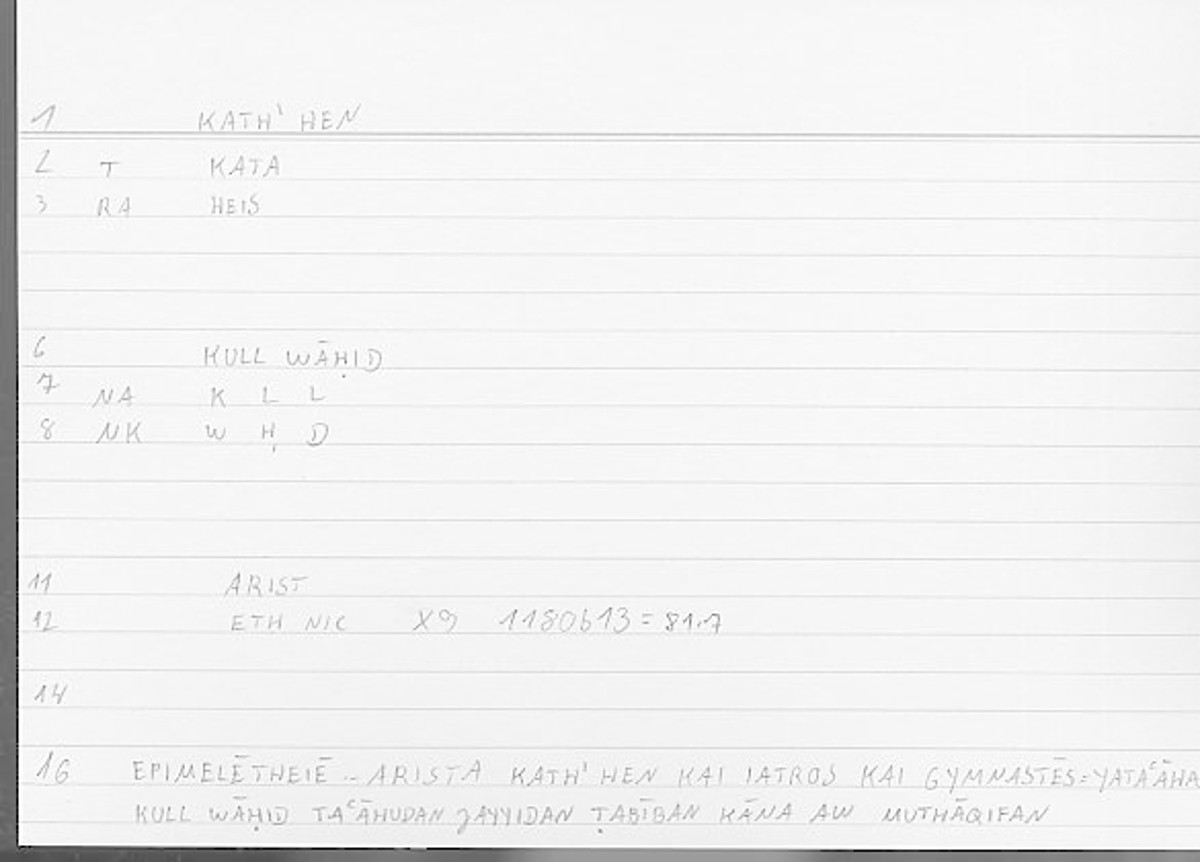 1 KATH' HEN
2 T KATA
3 RA HEIS
6 KULL WĀḤID
7 NA K L L
8 NK W Ḥ D
11 ARIST
12 ETH NIC X9 1180b13 = 81.7
14
16 EPIMELĒTHEIĒ .. ARISTA KATH' HEN KAI IATROS KAI GYMNASTĒS = YATAʿĀHA
KULL WĀḤID TAʿĀHUDAN JAYYIDAN ṬABĪBAN KĀNA AW MUTHĀQIFAN